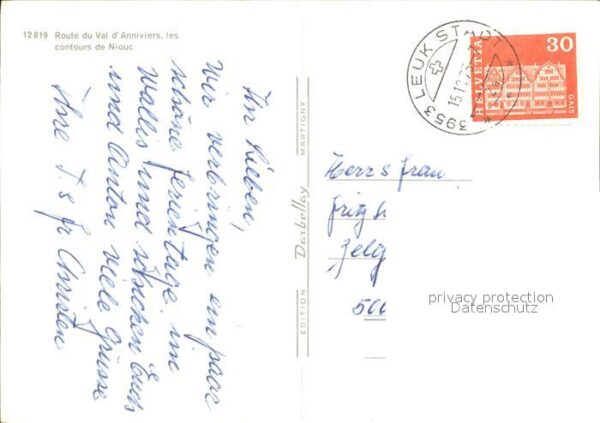 12819 Route du Val d'Anniviers, les
contours de Niouc
Ihr Lieben,
Wir verbringen ein paar
schöne Ferientage im
Wallis und wünschen Euch
und Anton viele Grüsse
EDITION Darbellay MARTIGNY
3953 LEUK STADT
HELVETIA
30
GAIS
Herr & Frau
Fritz
Zelg
500
privacy protection
Datenschutz